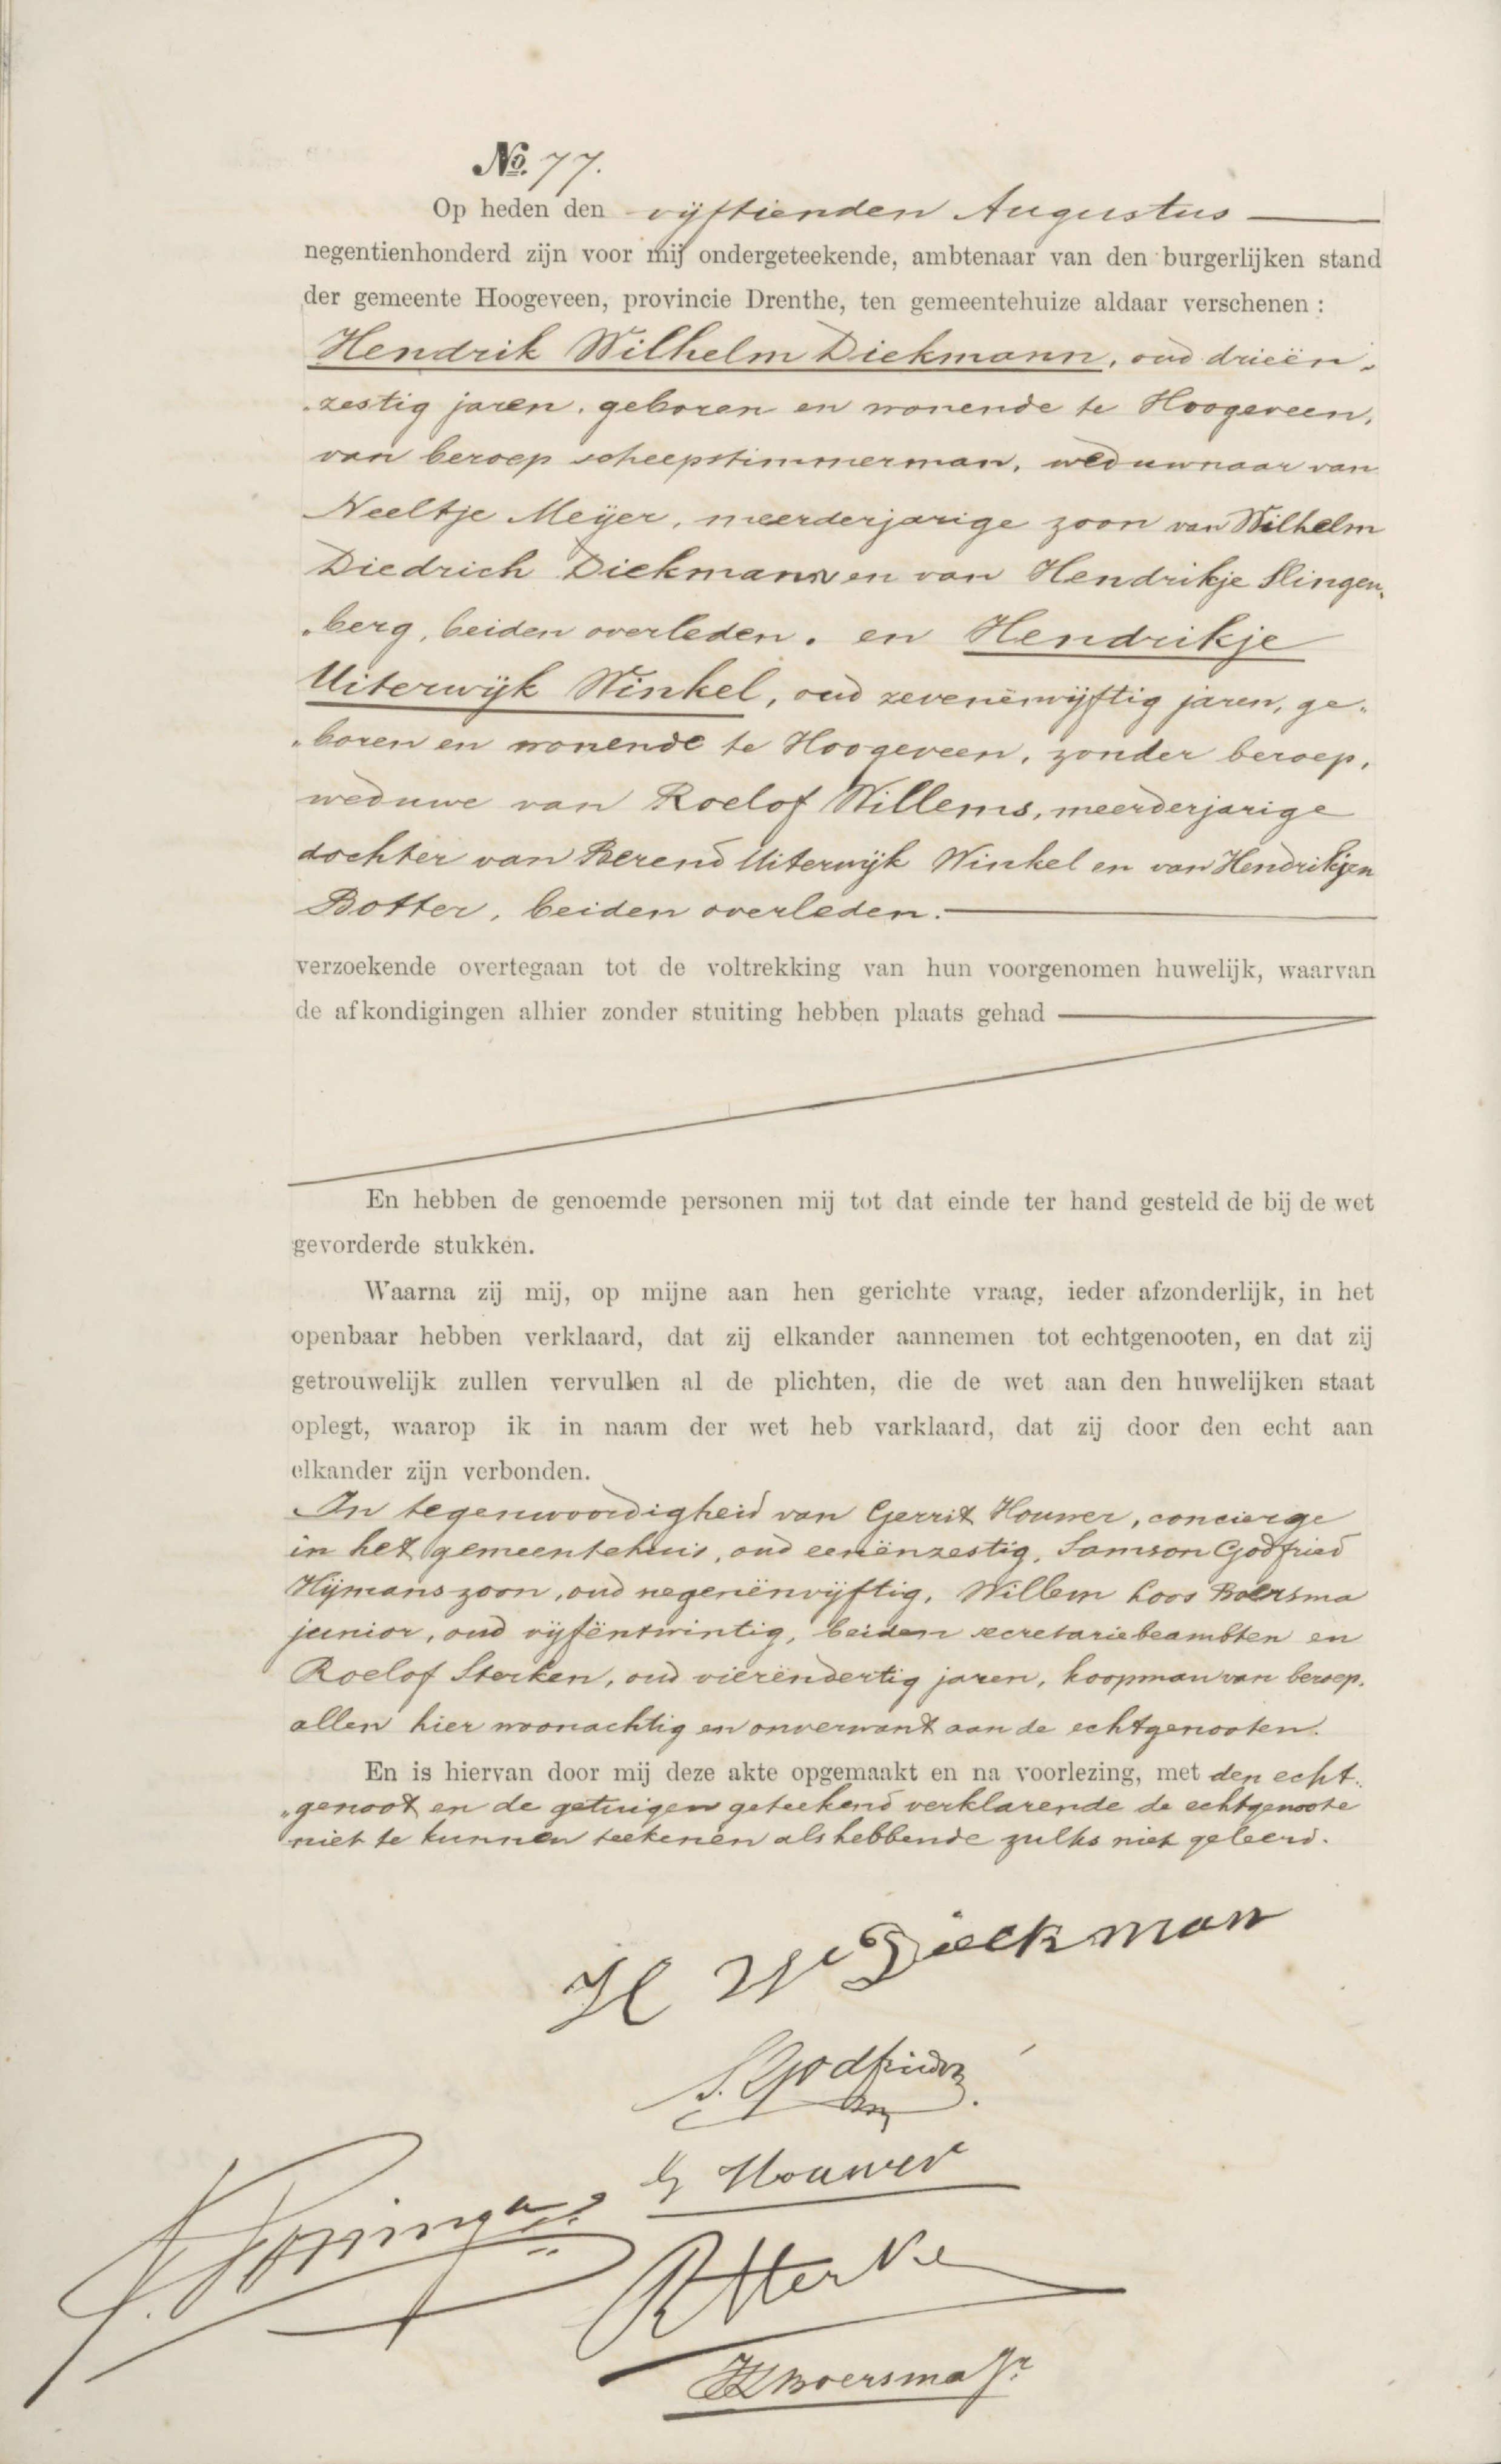 No. 77.
Op heden den vijftienden Augustus
negentienhonderd zijn voor mij ondergeteekende, ambtenaar van den burgerlijken stand
der gemeente Hoogeveen, provincie Drenthe, ten gemeentehuize aldaar verschenen :
Hendrik Wilhelm Diekmann, oud drieën„
„zestig jaren, geboren en wonende te Hoogeveen,
van beroep scheepstimmerman, weduwnaar van
Neeltje Meijer, meerderjarige zoon van Wilhelm
Diedrich Diekmann en van Hendrikje Slingen„
„berg, beiden overleden. en Hendrikje
Uiterwijk Winkel, oud zevenënvijftig jaren, ge„
„boren en wonende te Hoogeveen, zonder beroep,
weduwe van Roelof Willems, meerderjarige
dochter van Berend Uiterwijk Winkel en van Hendrikjen
Botter, beiden overleden.
verzoekende overtegaan tot de voltrekking van hun voorgenomen huwelijk, waarvan
de afkondigingen alhier zonder stuiting hebben plaats gehad
En hebben de genoemde personen mij tot dat einde ter hand gesteld de bij de wet
gevorderde stukken.
Waarna zij mij, op mijne aan hen gerichte vraag, ieder afzonderlijk, in het
openbaar hebben verklaard, dat zij elkander aannemen tot echtgenooten, en dat zij
getrouwelijk zullen vervullen al de plichten, die de wet aan den huwelijken staat
oplegt, waarop ik in naam der wet heb varklaard, dat zij door den echt aan
elkander zijn verbonden.
In tegenwoordigheid van Gerrit Houwer, concierge
in het gemeentehuis, oud eenënzestig, Samson Godfried
Hijmanszoon, oud negenënvijftig, Willem Loos Boersma
junior, oud vijfëntwintig, beiden secretariebeambten en
Roelof Sterken, oud vierëndertig jaren, koopman van beroep,
allen hier woonachtig en onverwant aan de echtgenooten.
En is hiervan door mij deze akte opgemaakt en na voorlezing, met den echt„
„genoot en de getuigen geteekend verklarende de echtgenoote
niet te kunnen teekenen als hebbende zulks niet geleerd.
H W Diekman
S. Godfriedz
G Houwer
R Sterke
WL Boersma Jr